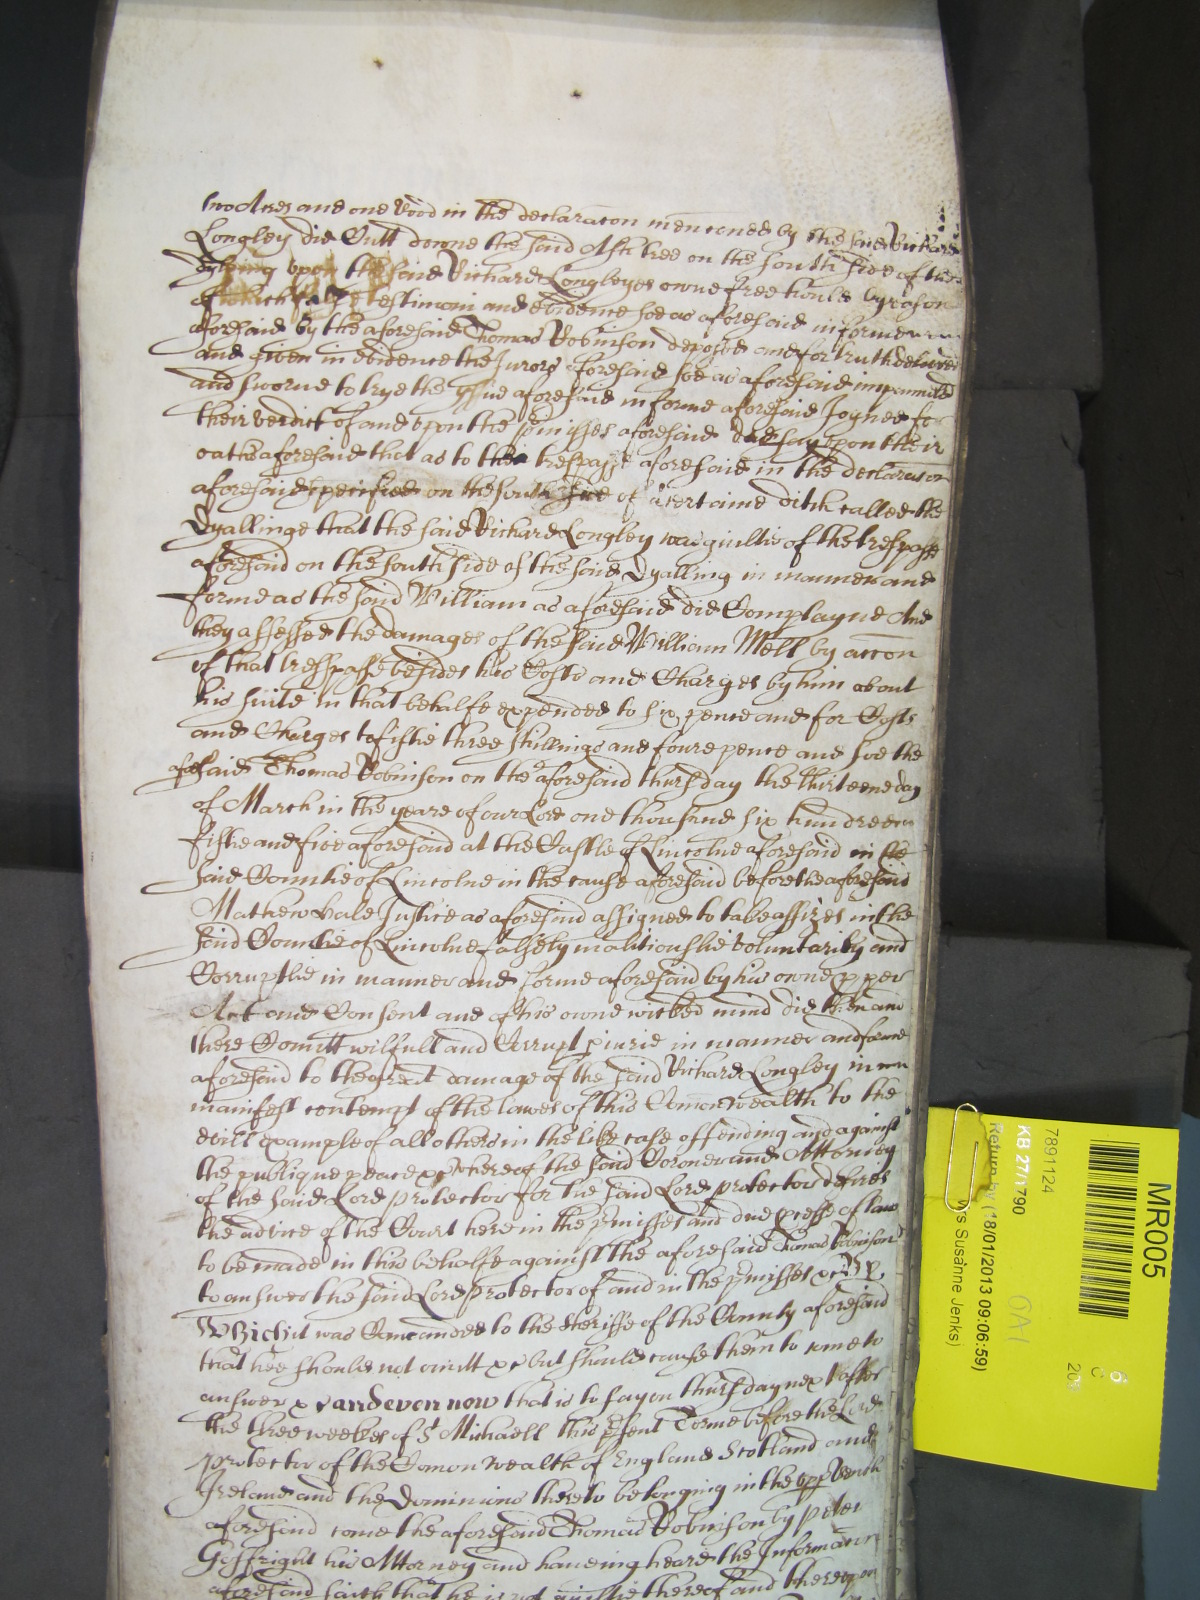 two Acres and one Rood in the declaracon menconed by the said Richard
Longley did Cutt downe the said Ash tree on the south side of the
Dyking upon the said Richard Longleyes owne free hould by reason
of which false testimoni and evidence soe as aforesaid in forme
aforesaid by the aforesaid Thomas Robinson deposed and for truth delivered
and given in evidence the Jurors aforesaid soe as aforesaid impannelled
and sworne to trye the yssue aforesaid in forme aforesaid Joyned for
their verdict of and upon the pmisses aforesaid did say upon their
oathe aforesaid that as to the trespasse aforesaid in the declaracon
aforesaid specified on the south side of a certaine ditch called the
Dyallinge that the said Richard Longley was guiltie of the trespasse
aforesaid on the south side of the said Dyalling in manner and
forme as the said William as aforesaid did Complayne And
they assessed the damages of the said William Mell by accon
of that trespasse besides his Costs and Charges by him about
his suite in that behalfe expended to six pence and for Costs
and Charges to fiftie three shillings and foure pence and soe the
aforesaid Thomas Robinson on the aforesaid thursday the thirteene day
of March in the yeare of our Lord one thousand six hundred
fiftie and five aforesaid at the Castle of Lincolne aforesaid in the
said Countie of Lincolne in the cause aforesaid before the aforesaid
Mathew Hale Justice as aforesaid assigned to take assizes in the
said Countie of Lincolne falsely malitiouslie voluntarily and
Corruptlie in manner and forme aforesaid by his owne pper
Act and Consent and of his owne wicked mind did then and
there Comitt wilfull and Corrupt piurie in manner and forme
aforesaid to the great damage of the said Richard Longley in
manifest contempt of the lawes of this Comonwealth to the
evill example of all others in the like case offending and against
the publique peace &c whereof the said Coroner and Attorney
of the said Lord protector for the said Lord protector desires
the advice of the Court here in the pmisses and due pcesse of law
to be made in this behalfe against the aforesaid Thomas Robinson
to answer the said Lord protector of and in the pmisses &c
Which was Comanded to the Sheriffe of the County aforesaid
that hee should not omitt &c but should cause them to come to
answer &c and even now that is to say on thursday next after
the three weekes of St Michaell this psent Terme before the Lord
protector of the Comon wealth of England Scotland and
Ireland and the Dominions thereto belonging in the upp Bench
aforesaid come the aforesaid Thomas Robinson by peter
Goffright his Attorney and haveing heard the Informacon
aforesaid saith that he is not guiltie thereof and thereupon
MR005
7891124
KB 27/1790
Return by (18/01/2013 09:06:59)
Mrs Susanne Jenks)
6
C